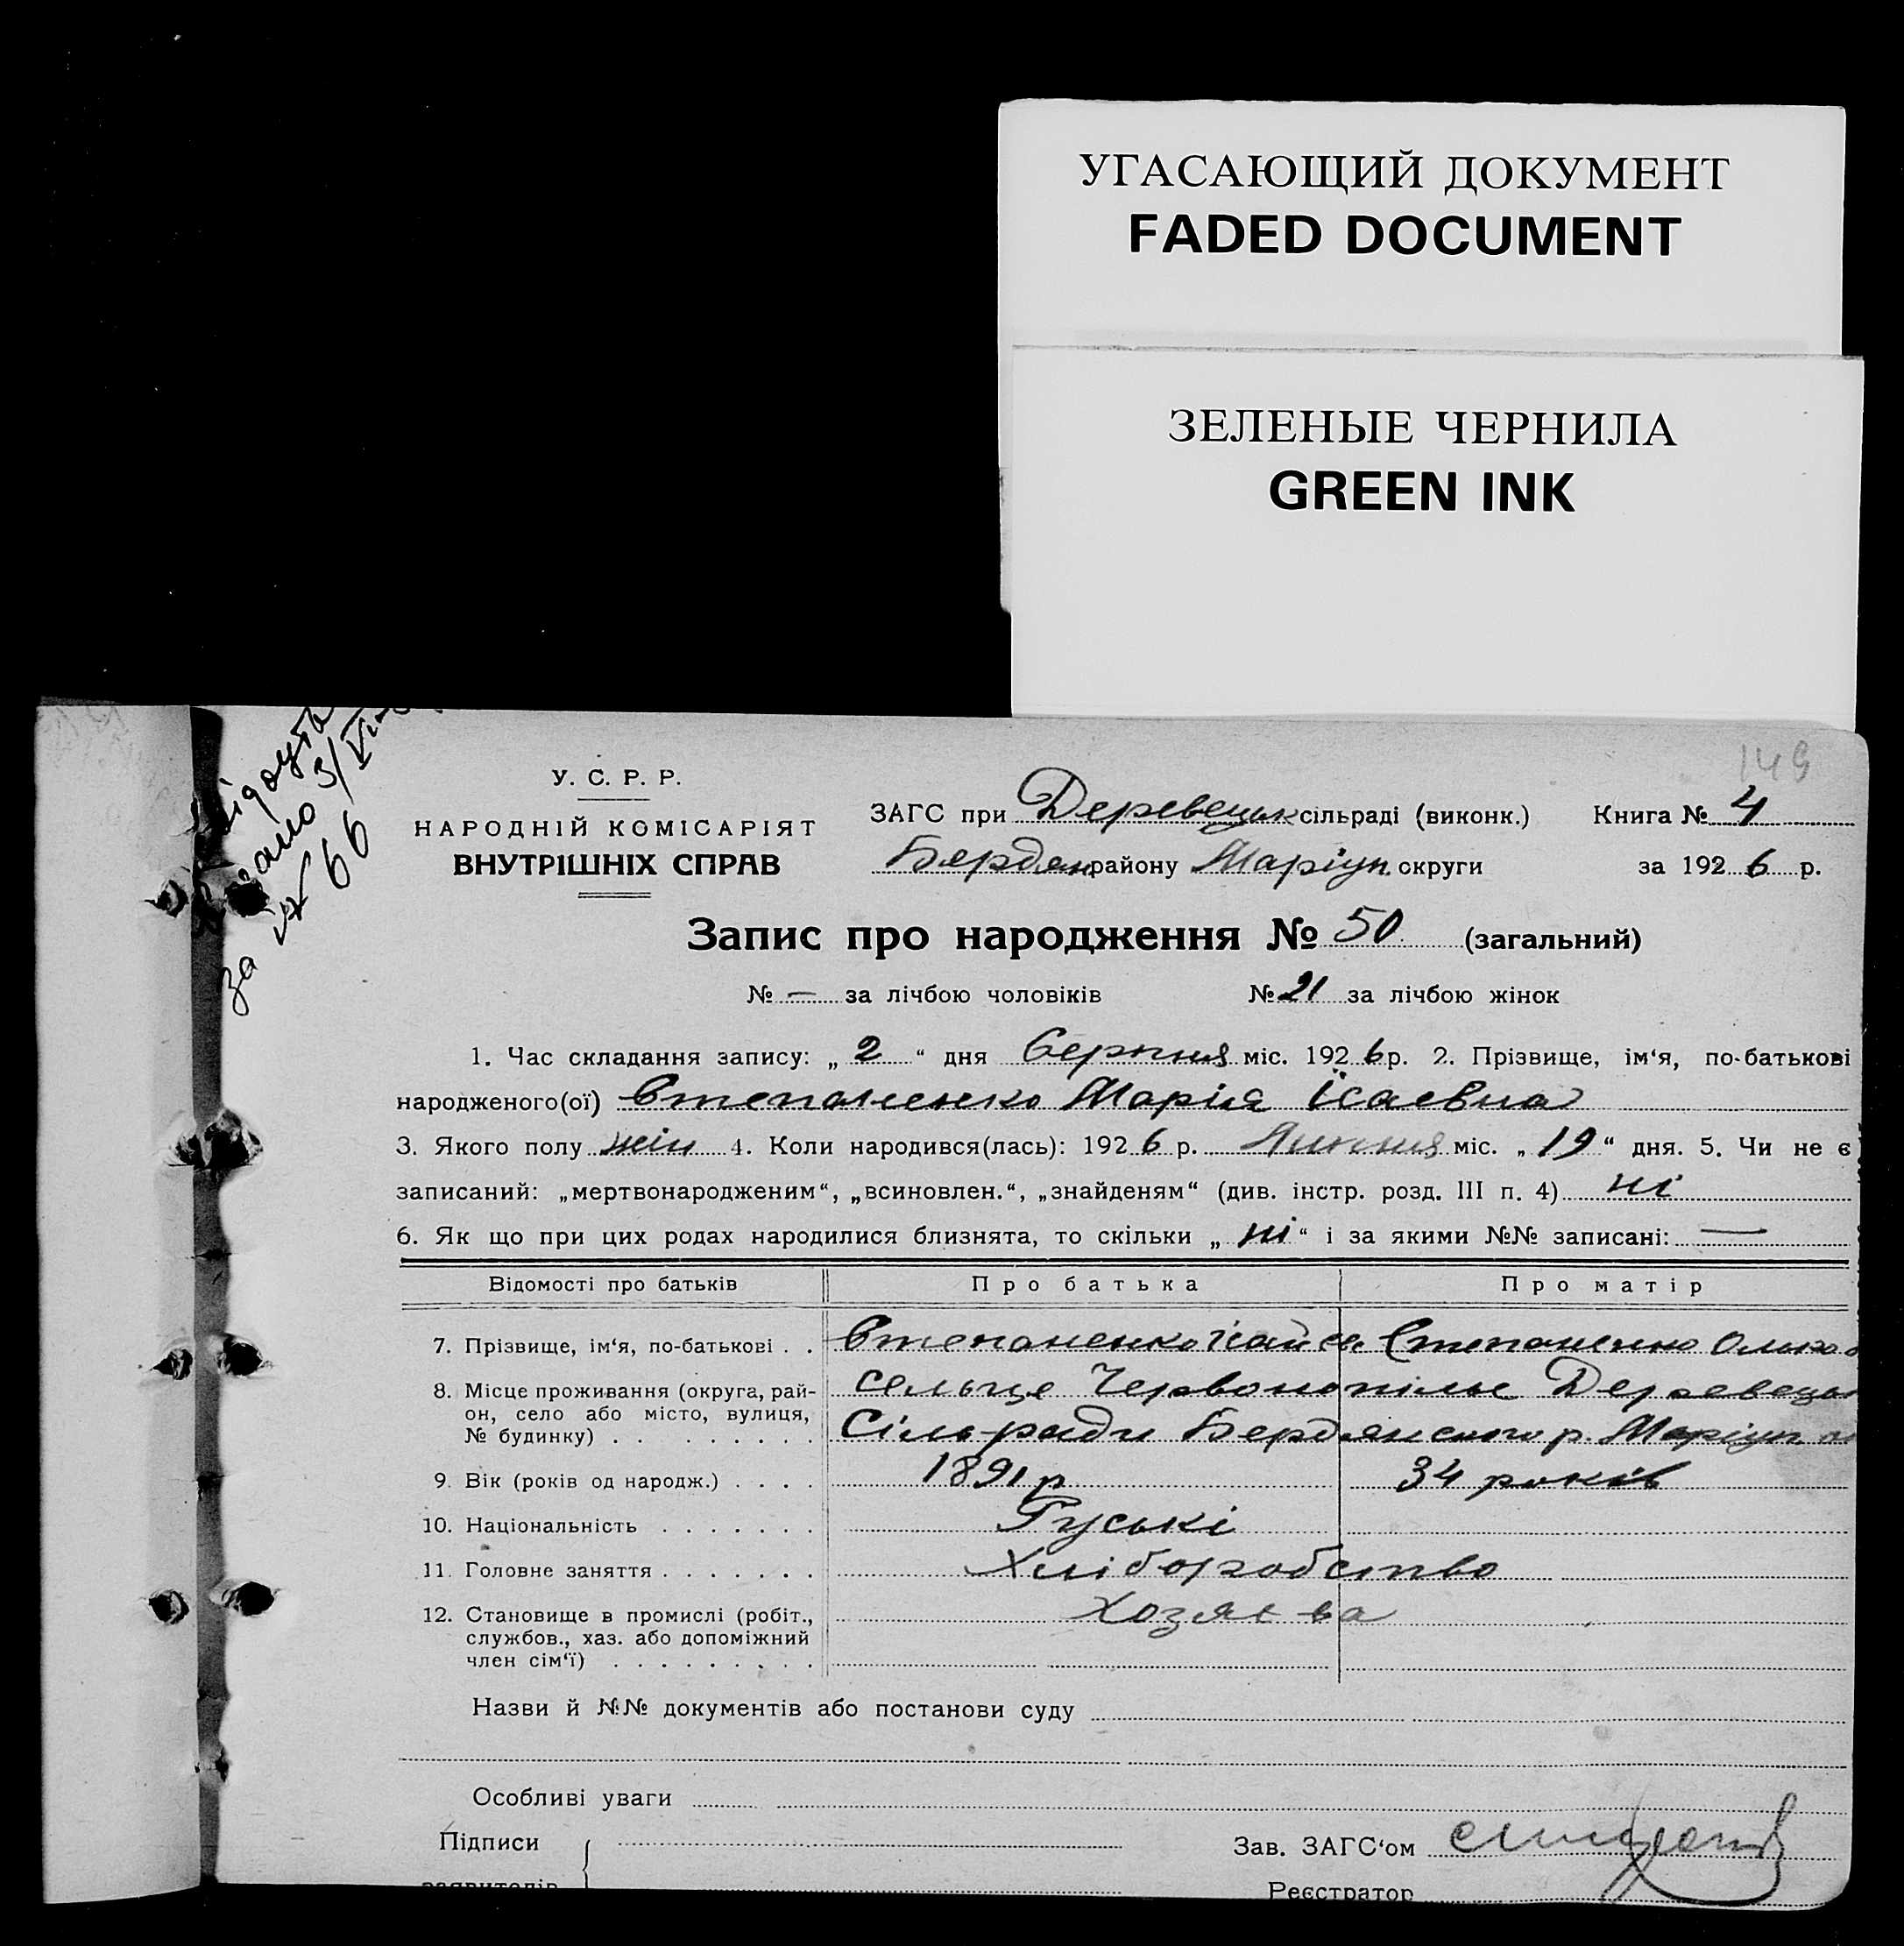 УГАСАЮЩИЙ ДОКУМЕНТ
FADED DOCUMENT
ЗЕЛЕНЫЕ ЧЕРНИЛА
GREEN INK
149
3/VI
№ 66
за
У. С. Р. Р.
НАРОДНІЙ КОМІСАРІЯТ
ВНУТРІШНІХ СПРАВ
ЗАГС при Деревецьк сільраді (виконк.) Книга № 4
Бердян району Маріуп. округи за 1926 р.
Запис про народження № 50 (загальний)
№ — за лічбою чоловіків № 21 за лічбою жінок
1. Час складання запису: „2“ дня Серпня міс. 1926 р. 2. Прізвище, ім‘я, по-батькові
народженого(ої) Степаненко Марія Ісаевна
3. Якого полу жін 4. Коли народився(лась): 1926 р. Липня міс. „19“ дня. 5. Чи не є
записаний: „мертвонародженим“, „всиновлен.“, „знайденям“ (див. інстр. розд. III п. 4) ні
6. Як що при цих родах народилися близнята, то скільки „ні“ і за якими №№ записані: —
Відомості про батьків Про батька Про матір
7. Прізвище, ім‘я, по-батькові . . Степаненко Степаненко Ольга
8. Місце проживання (округа, рай- сельце Червонопілье Деревецьк
он, село або місто, вулиця, Сільради Бердянського р. Маріуп.
№ будинку) . . . . . . . . .
9. Вік (років од народж.) . . . . 1891 р 34 років
10. Національність . . . . . . . Руські
11. Головне заняття . . . . . . . Хліборобство
12. Становище в промислі (робіт., Хозяева
службов., хаз. або допоміжний
член сім‘ї) . . . . . . . . .
Назви й №№ документів або постанови суду
Особливі уваги
Підписи
заявителів
Зав. ЗАГС‘ом
Реєстратор